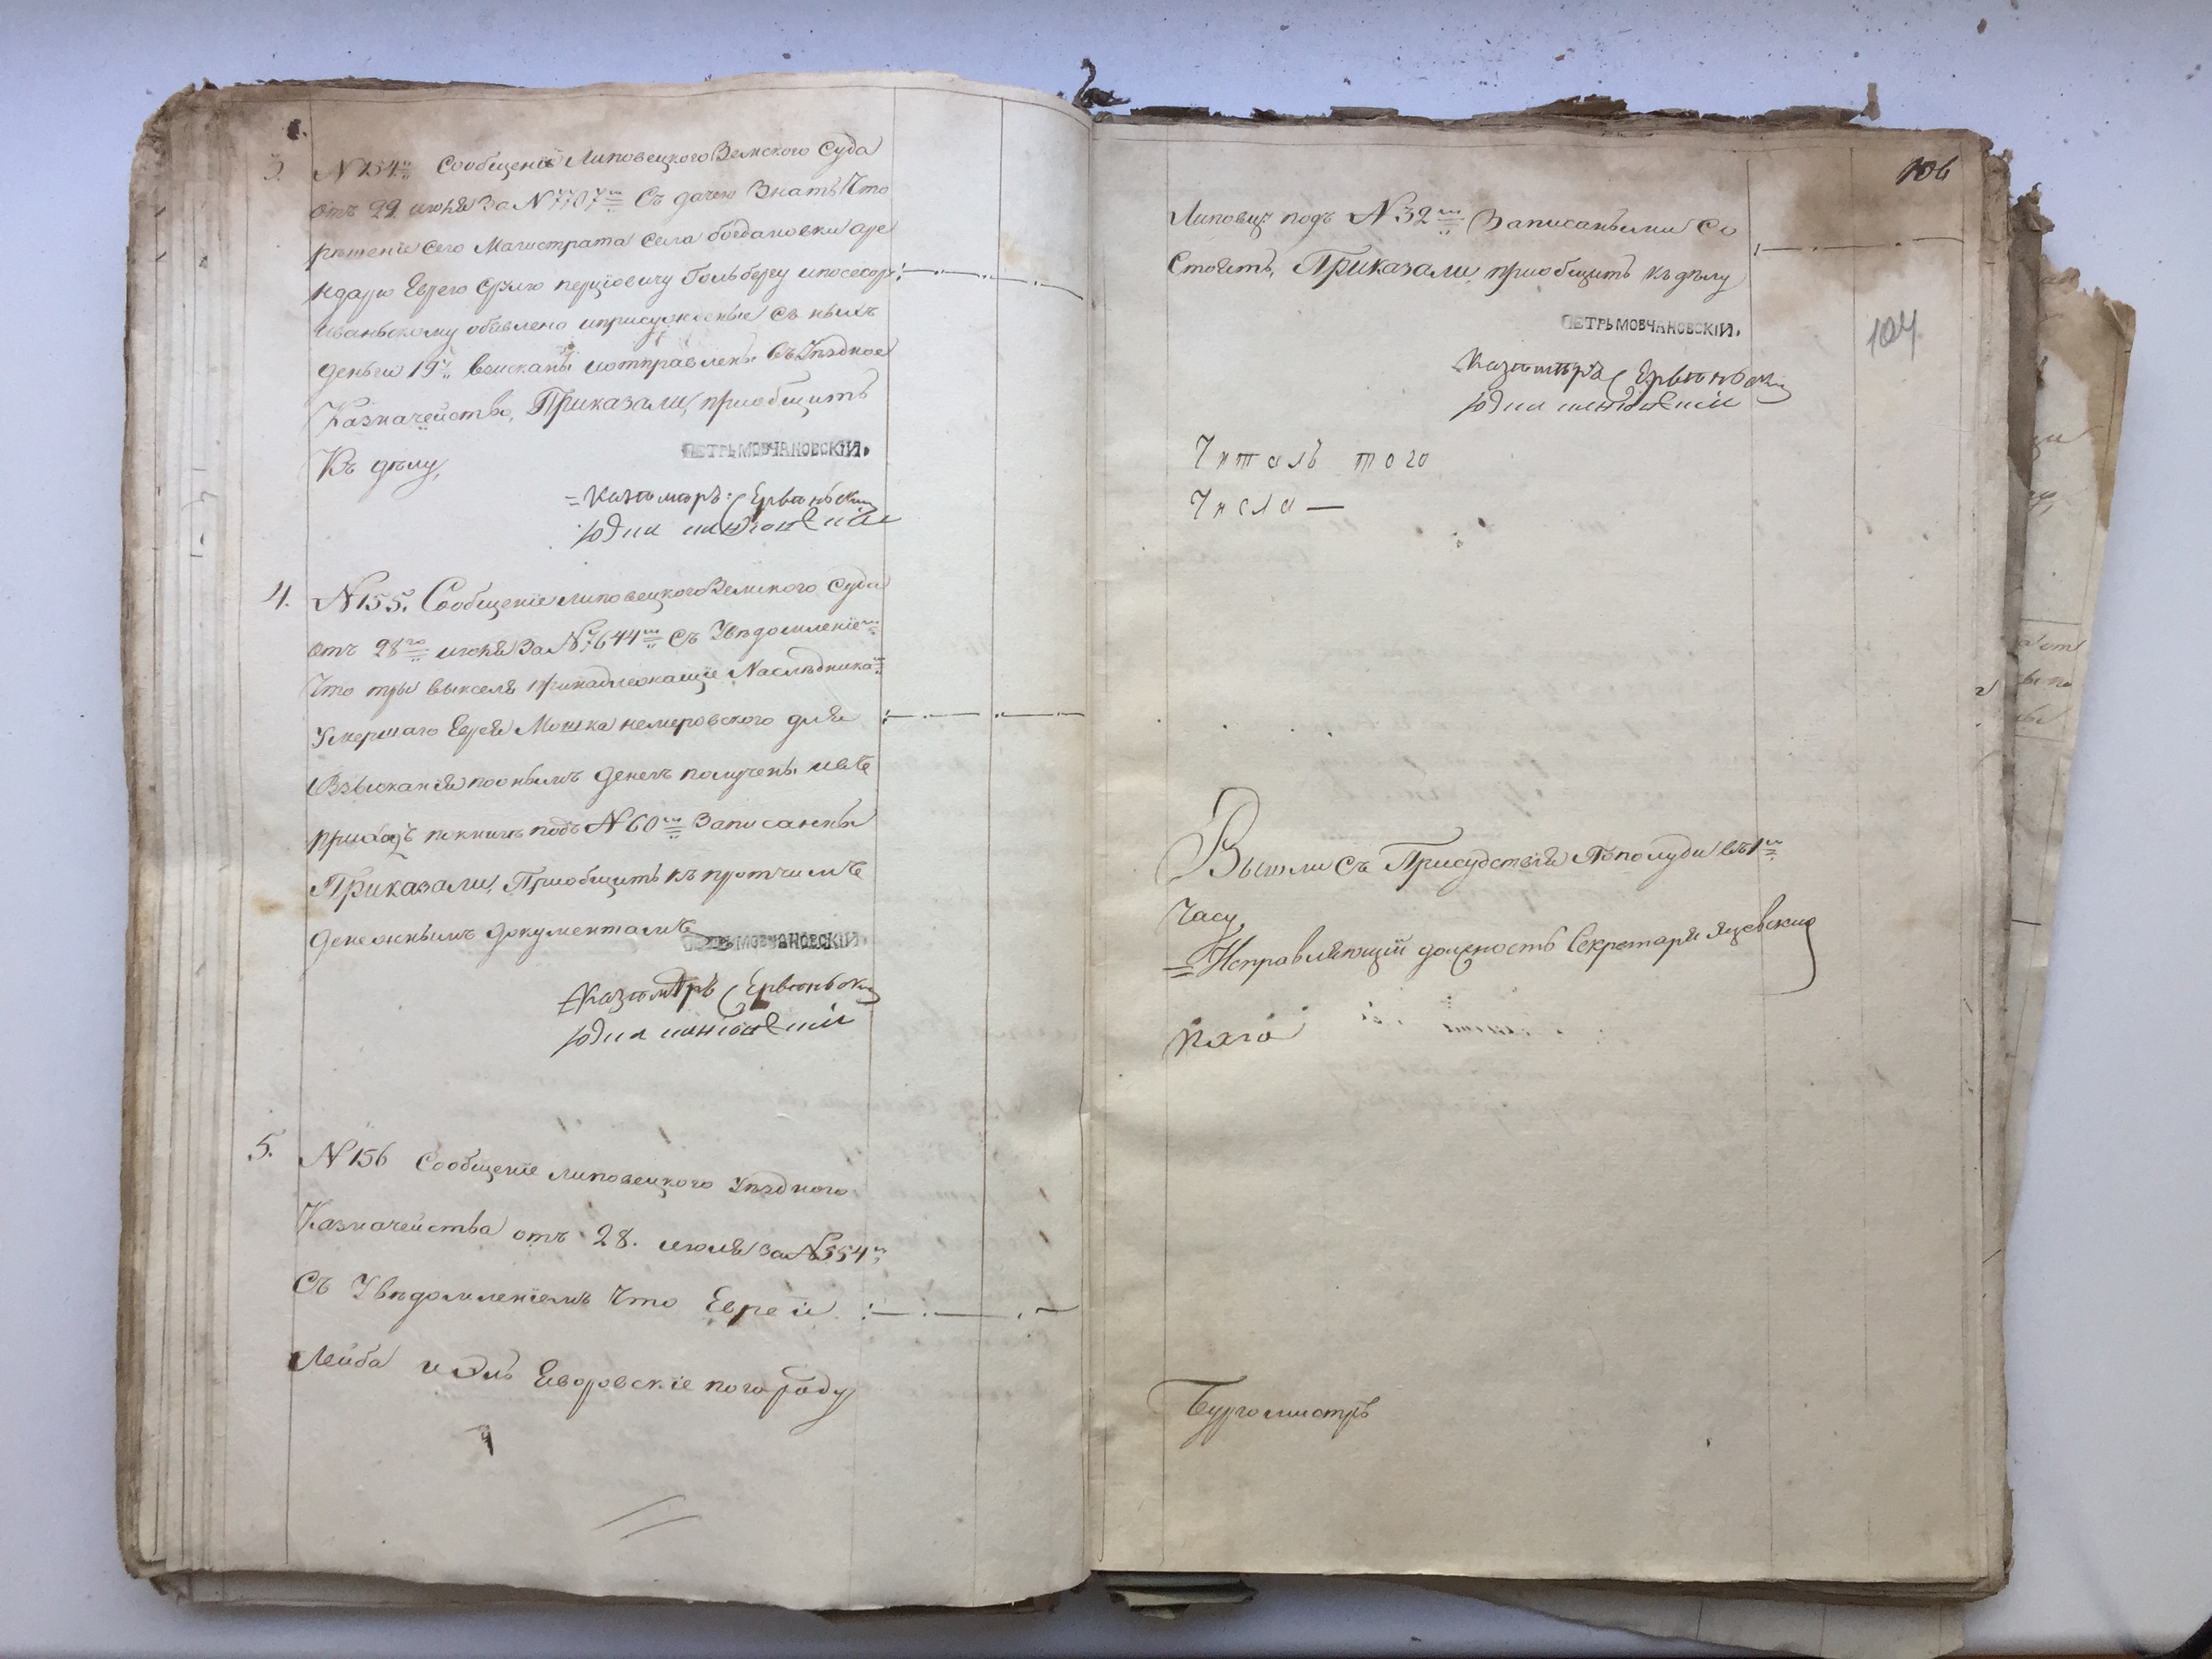 3. N 154й Сообщение Липовецкого Земского Суда
отъ 29 июня За N 7707м Съ дачею Знать Что
решение сего Магистрата Села богдановки аре
ндарю Еврею Срулю Гольберу
объявлено и присужденые съ ныхъ
деньги 19 взысканы и отправлены Въ Уездное
Казначейство, Приказали, приобщить
Къ делу,
ПЕТРЪ МОВЧАНОВСКІЙ.
Казимиръ
4. N 155. Сообщеніе липовецкого Земского Суда
отъ 28го июня За N 7644м Съ Уведомленіем
Что три векселя принадлежащіе Наследника
Умершаго Еврея Мошка немеровского для
Взысканія по онымъ денегъ получены и въ
приходъ по книги подъ N 60м Записанны
Приказали, Приобщить къ протчимъ
денежнымъ документамъ
ПЕТРЪ МОВЧАНОВСКІЙ.
Казимиръ
5. N 156 Сообщеніе липовецкого Уездного
Казначейства отъ 28. июня за N 554м
Съ Уведомленіемъ Что Евреи
Лейба и Эль Еворовскіе по городу
106
Липовцу подъ N 32м Записаныими Со
стоятъ, Приказали, приобщить къ делу
104
ПЕТРЪ МОВЧАНОВСКІЙ.
Казимиръ
Читалъ того
Числа —
Вышли Съ Присудствія По полуди въ 1м
Часу
Исправляющій должность Секретаря Яцевскио
Бургомистръ